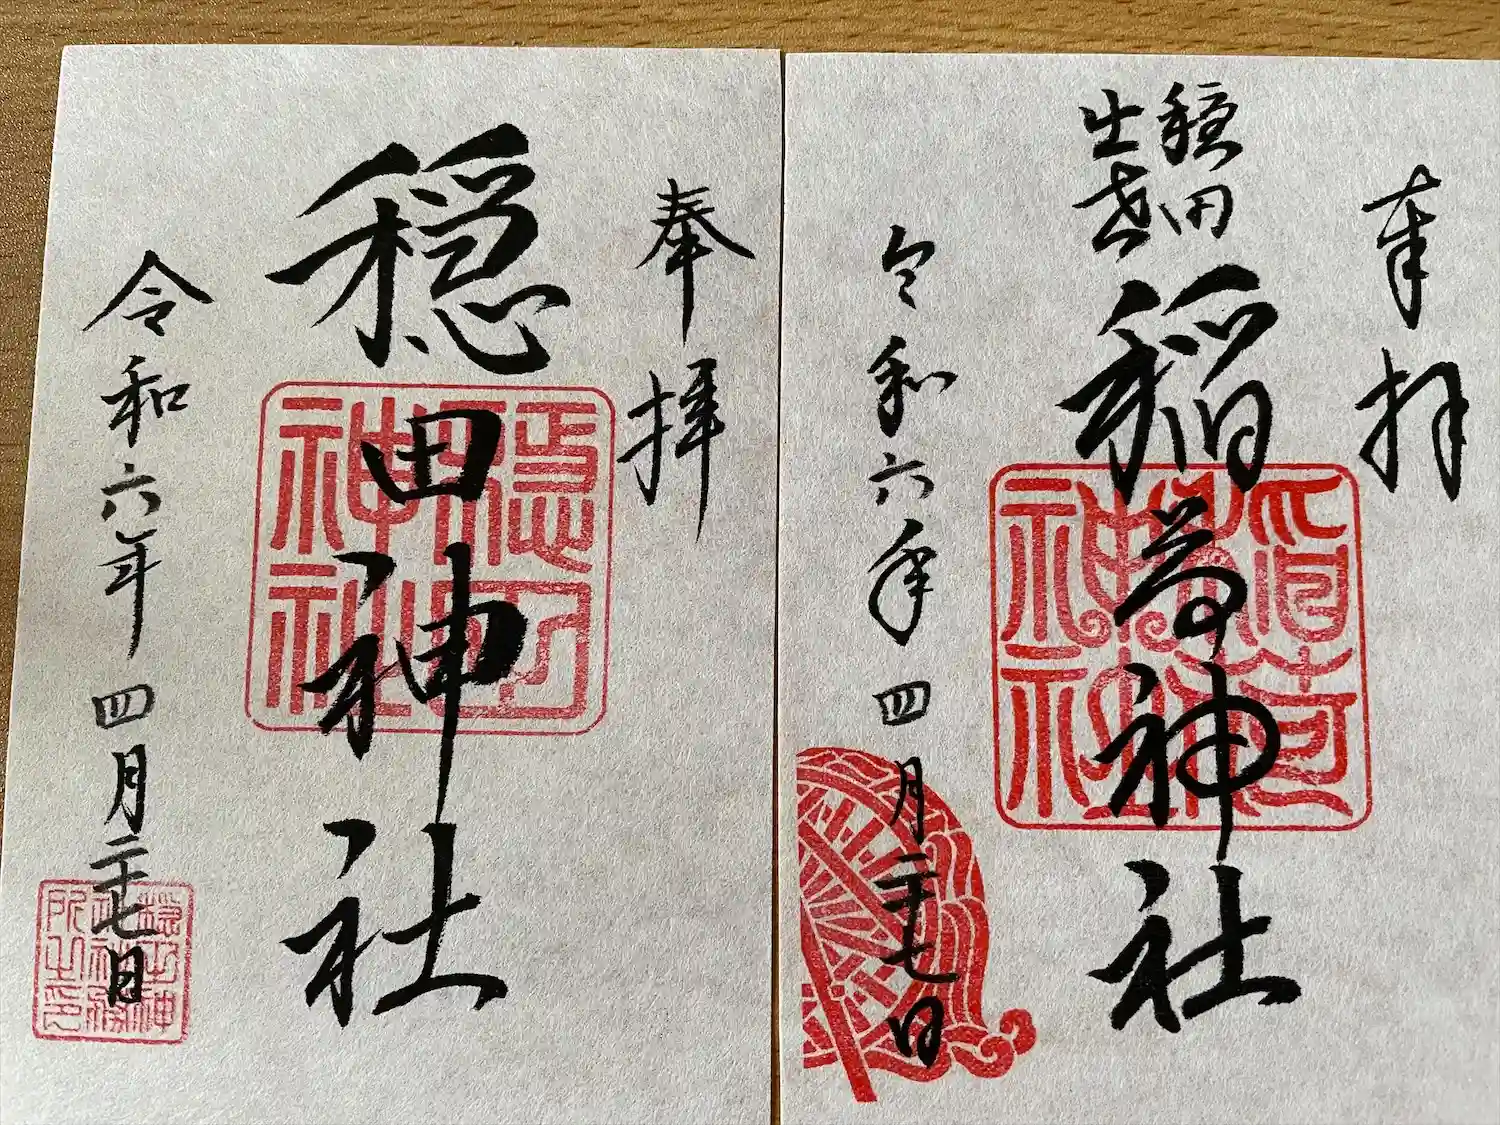 奉拝
穏田神社
令和六年四月二十七日
穏田神社
奉拝
穏田
出世
稲荷神社
令和六年四月二十七日
稲荷神社